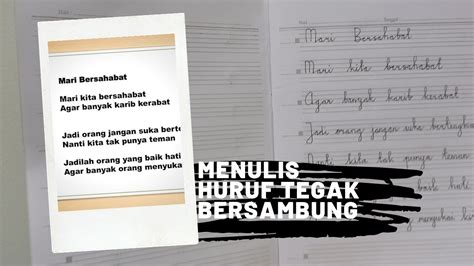 Mari Bersahabat
Mari kita bersahabat
Agar banyak karib kerabat
Jadi orang jangan suka berte
Nanti kita tak punya teman
Jadilah orang yang baik hati
Agar banyak orang menyuka
MENULIS
HURUF TEGAK
BERSAMBUNG
Mari Bersahabat
Mari kita bersahabat
Agar banyak karib kerabat
Jadi orang jangan suka bertengka
kita tak punya teman
baik hati